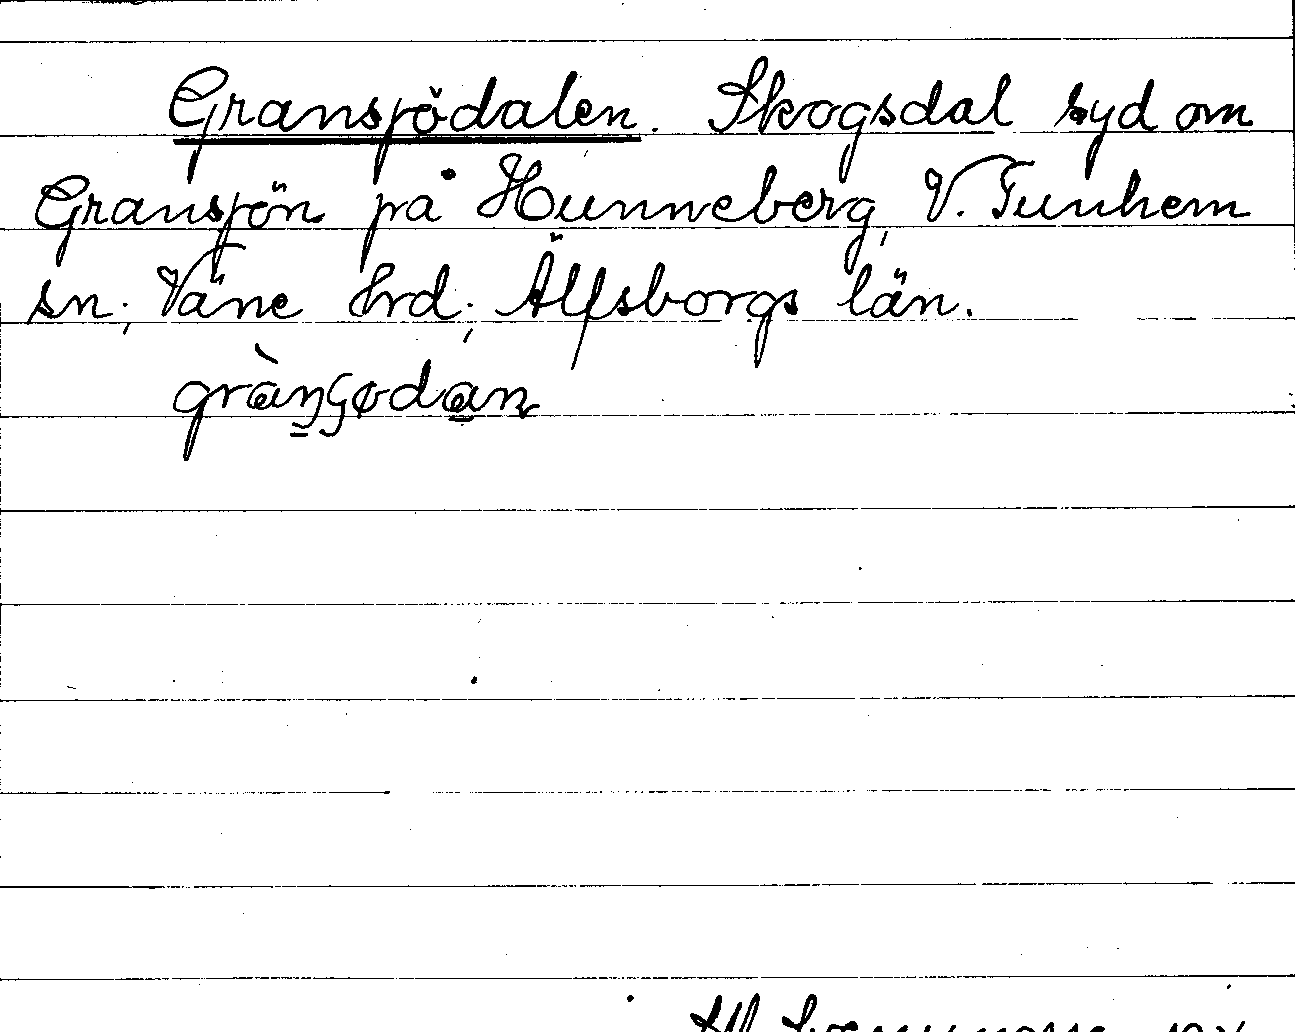 Gransjödalen. Skogsdal syd om
Gransjön på Hunneberg, V. Tunhem
sn, Väne hrd, Älfsborgs län.